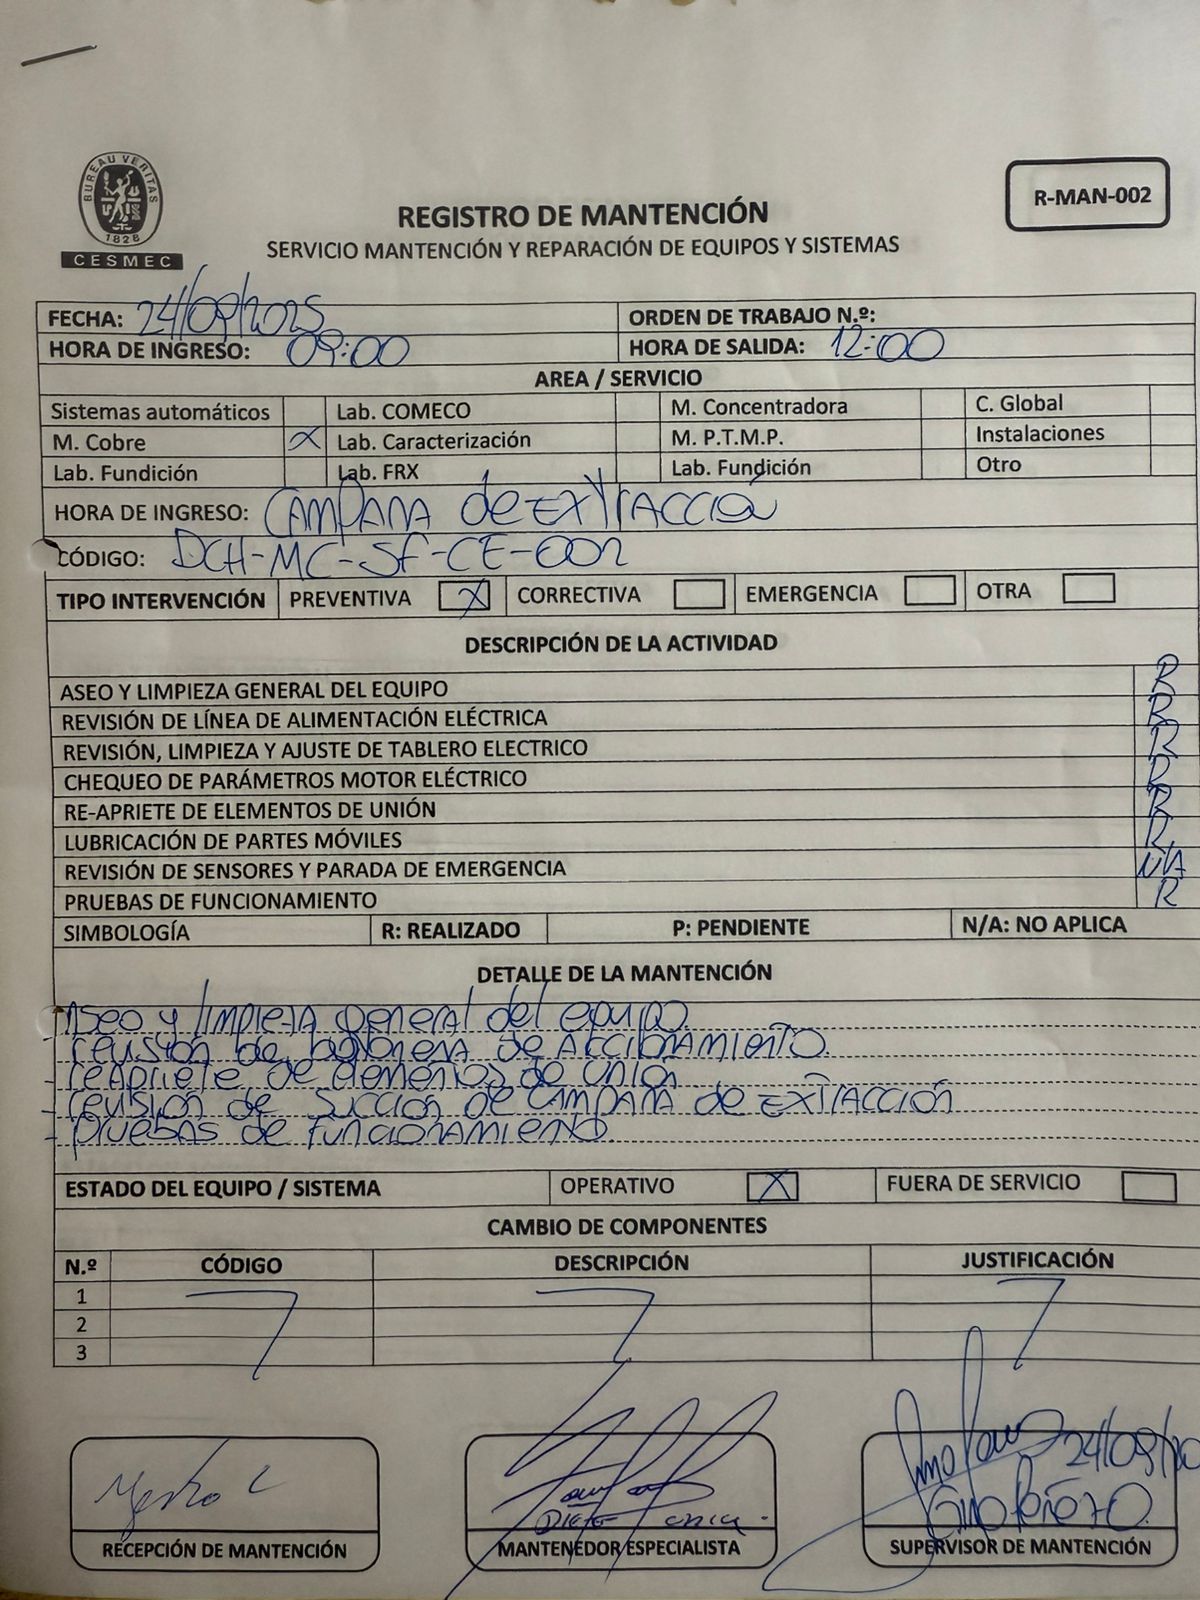 BUREAU VERITAS
1828
CESMEC
R-MAN-002
REGISTRO DE MANTENCIÓN
SERVICIO MANTENCIÓN Y REPARACIÓN DE EQUIPOS Y SISTEMAS
FECHA: 24/09/2025 ORDEN DE TRABAJO N.º:
HORA DE INGRESO: 09:00 HORA DE SALIDA: 12:00
AREA / SERVICIO
Sistemas automáticos Lab. COMECO M. Concentradora C. Global
M. Cobre X Lab. Caracterización M. P.T.M.P. Instalaciones
Lab. Fundición Lab. FRX Lab. Fundición Otro
HORA DE INGRESO: CAMPANA de EXTRACCIÓN
CÓDIGO: DCH-MC-SF-CE-002
TIPO INTERVENCIÓN PREVENTIVA X CORRECTIVA EMERGENCIA OTRA
DESCRIPCIÓN DE LA ACTIVIDAD
ASEO Y LIMPIEZA GENERAL DEL EQUIPO R
REVISIÓN DE LÍNEA DE ALIMENTACIÓN ELÉCTRICA R
REVISIÓN, LIMPIEZA Y AJUSTE DE TABLERO ELECTRICO R
CHEQUEO DE PARÁMETROS MOTOR ELÉCTRICO R
RE-APRIETE DE ELEMENTOS DE UNIÓN R
LUBRICACIÓN DE PARTES MÓVILES R
REVISIÓN DE SENSORES Y PARADA DE EMERGENCIA N/A
PRUEBAS DE FUNCIONAMIENTO R
SIMBOLOGÍA R: REALIZADO P: PENDIENTE N/A: NO APLICA
DETALLE DE LA MANTENCIÓN
Aseo y limpieza general del equipo
revisión de botonera de ACCIONAMIENTO.
- reapriete de elementos de unión
- revisión de succión de CAMPANA de EXTRACCIÓN
- pruebas de funcionamiento.
ESTADO DEL EQUIPO / SISTEMA OPERATIVO X FUERA DE SERVICIO
CAMBIO DE COMPONENTES
N.º CÓDIGO DESCRIPCIÓN JUSTIFICACIÓN
1
2
3
24/09/20
RECEPCIÓN DE MANTENCIÓN MANTENEDOR ESPECIALISTA SUPERVISOR DE MANTENCIÓN